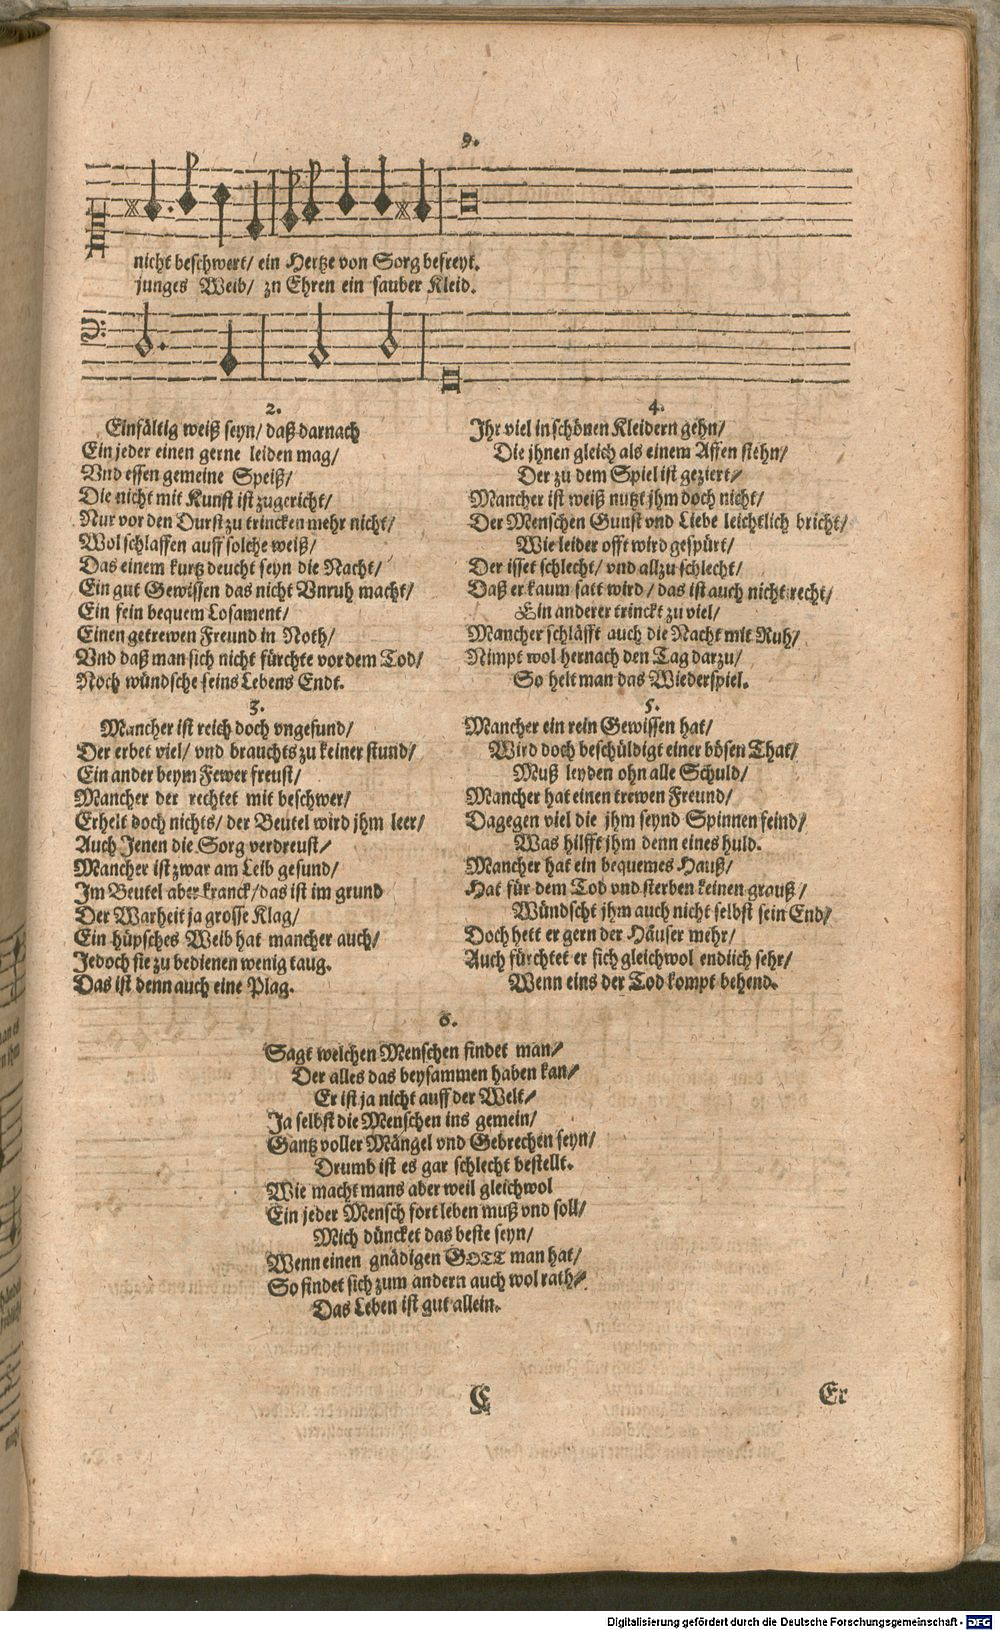 9.
nicht beschwert/ ein Hertze von Sorg befreyt.
junges Weib/ zu Ehren ein sauber Kleid.
2.
Einfältig weiß seyn/ daß darnach
Ein jeder einen gerne leiden mag/
Vnd essen gemeine Speiß/
Die nicht mit Kunst ist zugericht/
Nur vor den Durst zu trincken mehr nicht/
Wol schlaffen auff solche weiß/
Das einem kurtz deucht seyn die Nacht/
Ein gut Gewissen das nicht Vnruh macht/
Ein fein bequem Losament/
Einen getrewen Freund in Noth/
Vnd daß man sich nicht fürchte vor dem Tod/
Noch wündsche seins Lebens Endt.
3.
Mancher ist reich doch vngesund/
Der erbet viel/ vnd brauchts zu keiner stund/
Ein ander beym Fewer freust/
Mancher der rechtet mit beschwer/
Erhelt doch nichts/ der Beutel wird jhm leer/
Auch Jenen die Sorg verdreust/
Mancher ist zwar am Leib gesund/
Im Beutel aber kranck/ das ist im grund
Der Warheit ja grosse Klag/
Ein hüpsches Weib hat mancher auch/
Jedoch sie zu bedienen wenig taug.
Das ist denn auch eine Plag.
4.
Ihr viel in schönen Kleidern gehn/
Die jhnen gleich als einem Affen stehn/
Der zu dem Spiel ist geziert/
Mancher ist weiß nutzt jhm doch nicht/
Der Menschen Gunst vnd Liebe leichtlich bricht/
Wie leider offt wird gespürt/
Der isset schlecht/ vnd allzu schlecht/
Daß er kaum satt wird/ das ist auch nicht recht/
Ein anderer trinckt zu viel/
Mancher schläfft auch die Nacht mit Ruh/
Nimpt wol hernach den Tag darzu/
So helt man das Wiederspiel.
5.
Mancher ein rein Gewissen hat/
Wird doch beschüldigt einer bösen That/
Muß leyden ohn alle Schuld/
Mancher hat einen trewen Freund/
Dagegen viel die jhm seynd Spinnen feind/
Was hilfft jhm denn eines huld.
Mancher hat ein bequemes Hauß/
Hat für dem Tod vnd sterben keinen grauß/
Wündscht jhm auch nicht selbst sein End/
Doch hett er gern der Häuser mehr/
Auch fürchtet er sich gleichwol endlich sehr/
Wenn eins der Tod kompt behend.
6.
Sagt welchen Menschen findet man/
Der alles das beysammen haben kan/
Er ist ja nicht auff der Welt/
Ja selbst die Menschen ins gemein/
Gantz voller Mängel vnd Gebrechen seyn/
Drumb ist es gar schlecht bestellt.
Wie macht mans aber weil gleichwol
Ein jeder Mensch fort leben muß vnd soll/
Mich düncket das beste seyn/
Wenn einen gnädigen GOTT man hat/
So findet sich zum andern auch wol rath/
Das Leben ist gut allein.
C
Er
Digitalisierung gefördert durch die Deutsche Forschungsgemeinschaft - DFG